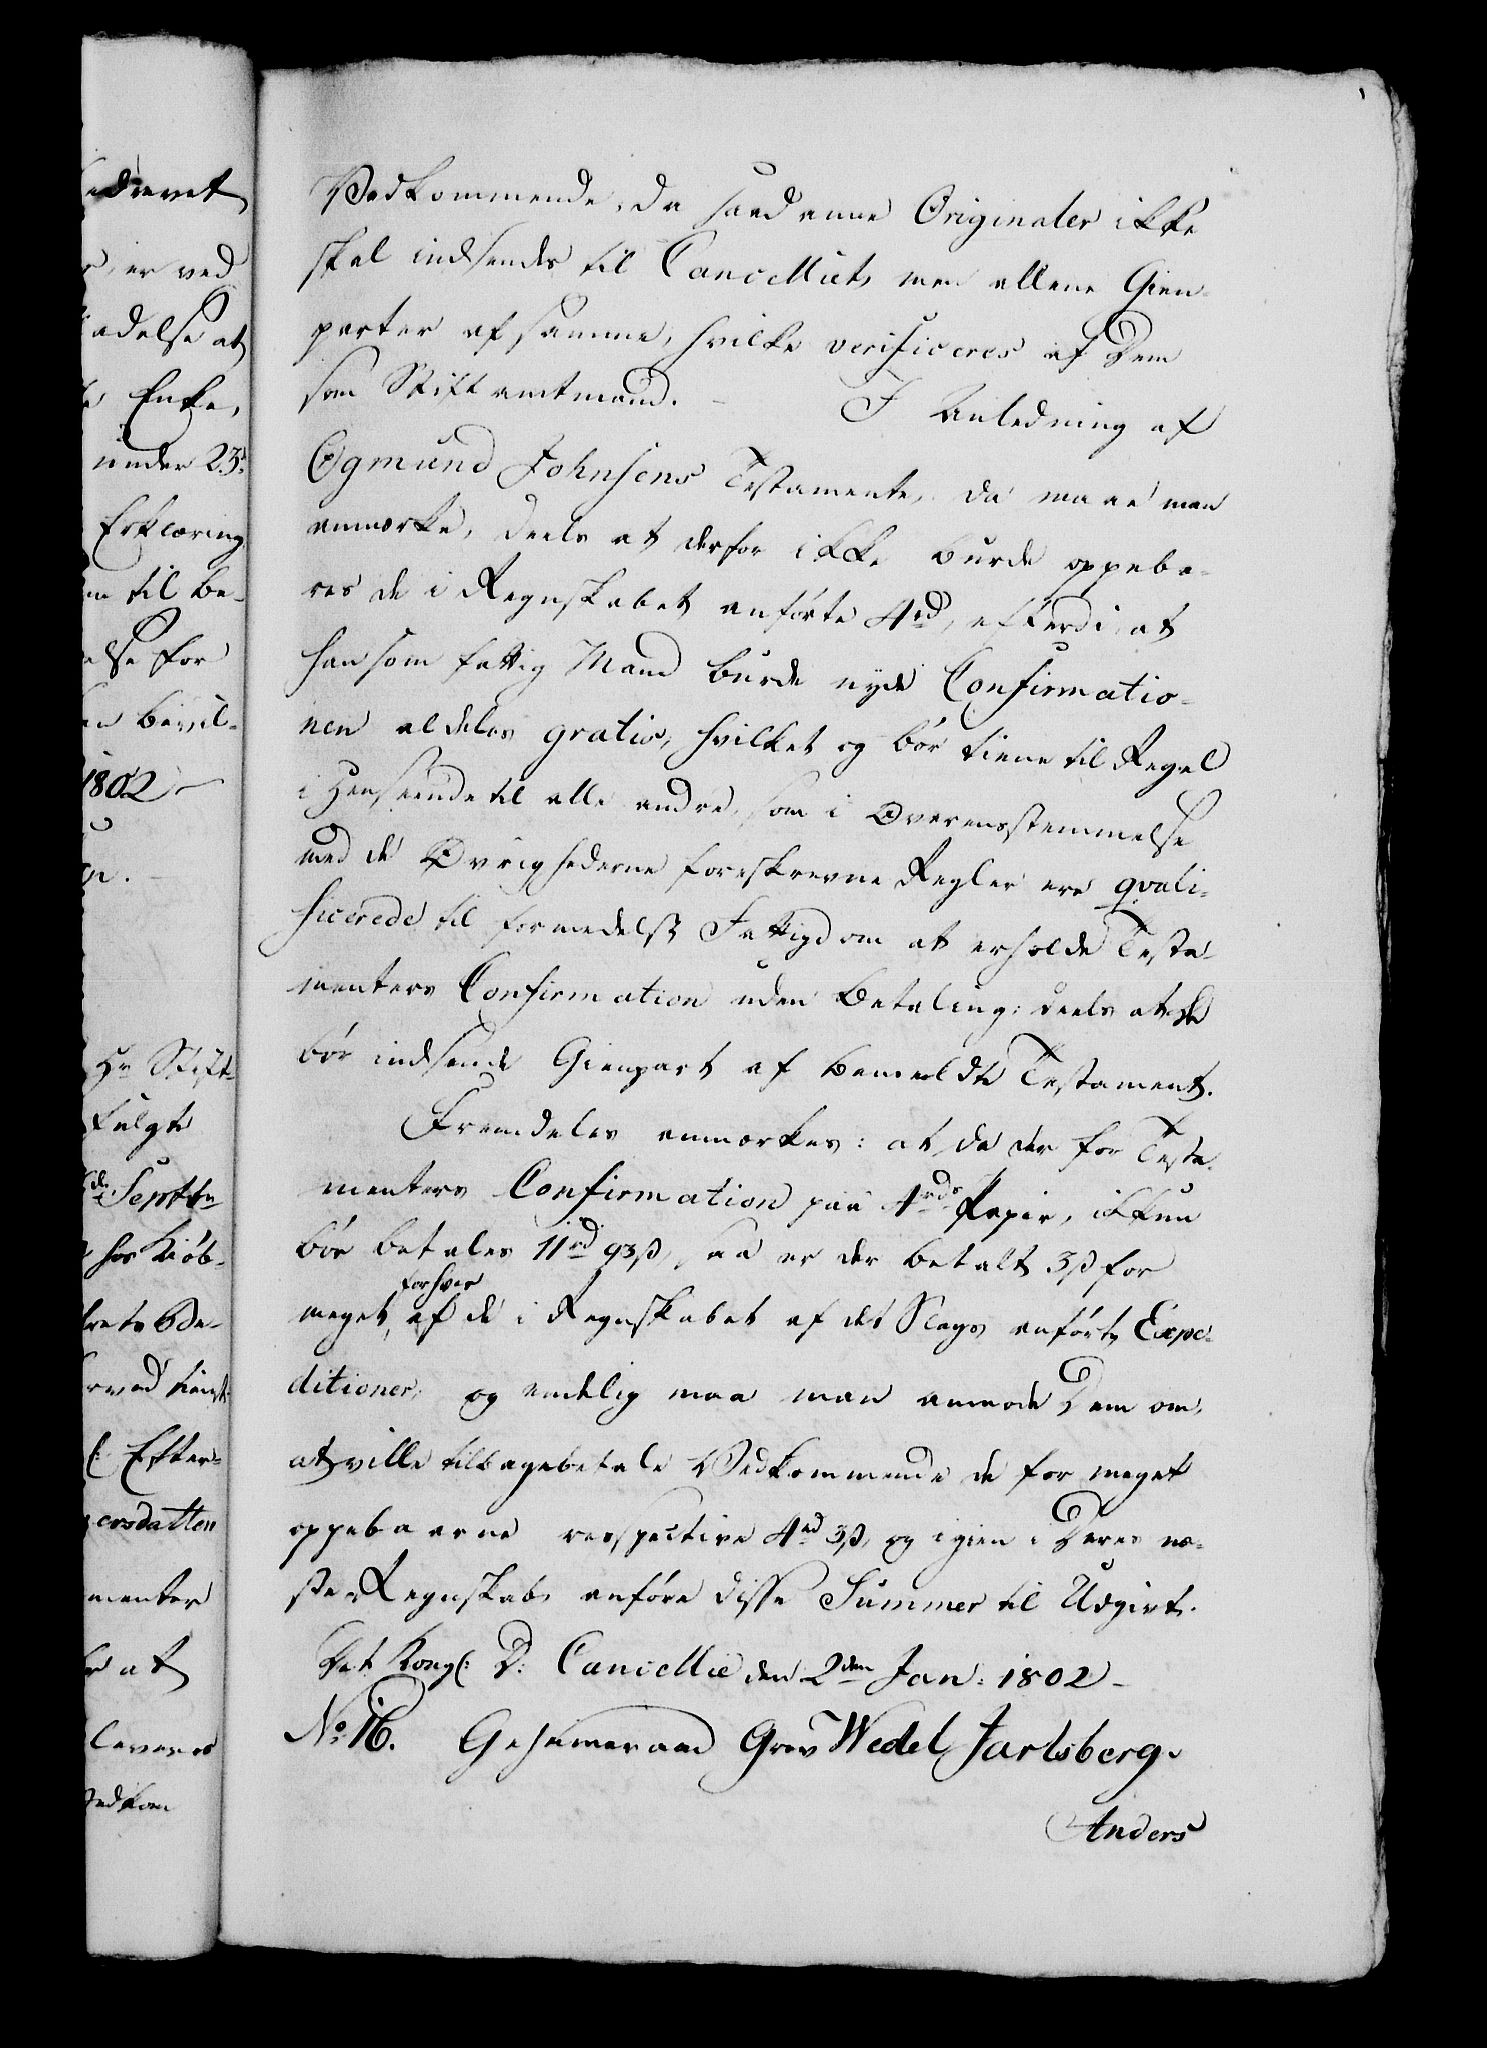 Vedkommende, da saadanne Originaler ikke
skal indsendes til Cancelliet, men allene Gien-
parter af samme, hvilke verificeres af Dem
som Stiftamtmand. - I Anledning af
Ogmund Johnsens Testamente, da maae man
anmærke, deels at derfor ikke burde oppebæ-
res de i Regnskabet anførte 4rd, efterdi at
han som fattig Mand burde nyde Confirmatio-
nen aldeles gratis, hvilket og bør tiene til Regel
i Henseende til alle andre, som i Overensstemmelse
med de Øvrighederne foreskrevne Regler ere qvali-
ficerede til formedelst Fattigdom at erholde Testa-
menters Confirmation uden Betaling; deels at De
bør indsende Gienpart af bemeldte Testament.
Fremdeles anmærkes: at da der for Testa-
menters Confirmation paa 4rds Papir, ikkun
bør betales 11rd 93ß, saa er der betalt 3ß for
meget, for hver af de i Regnskabet af det Slags anførte Expe-
ditioner; og endelig maa man anmode Dem om,
at ville tilbagebetale Vedkommende de for meget
oppebaarne respective 4rd 3ß, og igien i Deres næ-
ste Regnskab anføre disse Summer til Udgivt.
Det Kongl: D: Cancellie den 2den Jan: 1802 -
No: 16. Geheimeraad Grev Wedel Jarlsberg.
Anders
er ved
adelse at
Enke,
under 23d
Erklæring
til be-
else for
bevil-
1802 -
Hr Stift-
fulgte
Septbr
hos Kiøb-
Efter-
ersdatten
menter
at
leveres
Vedkom